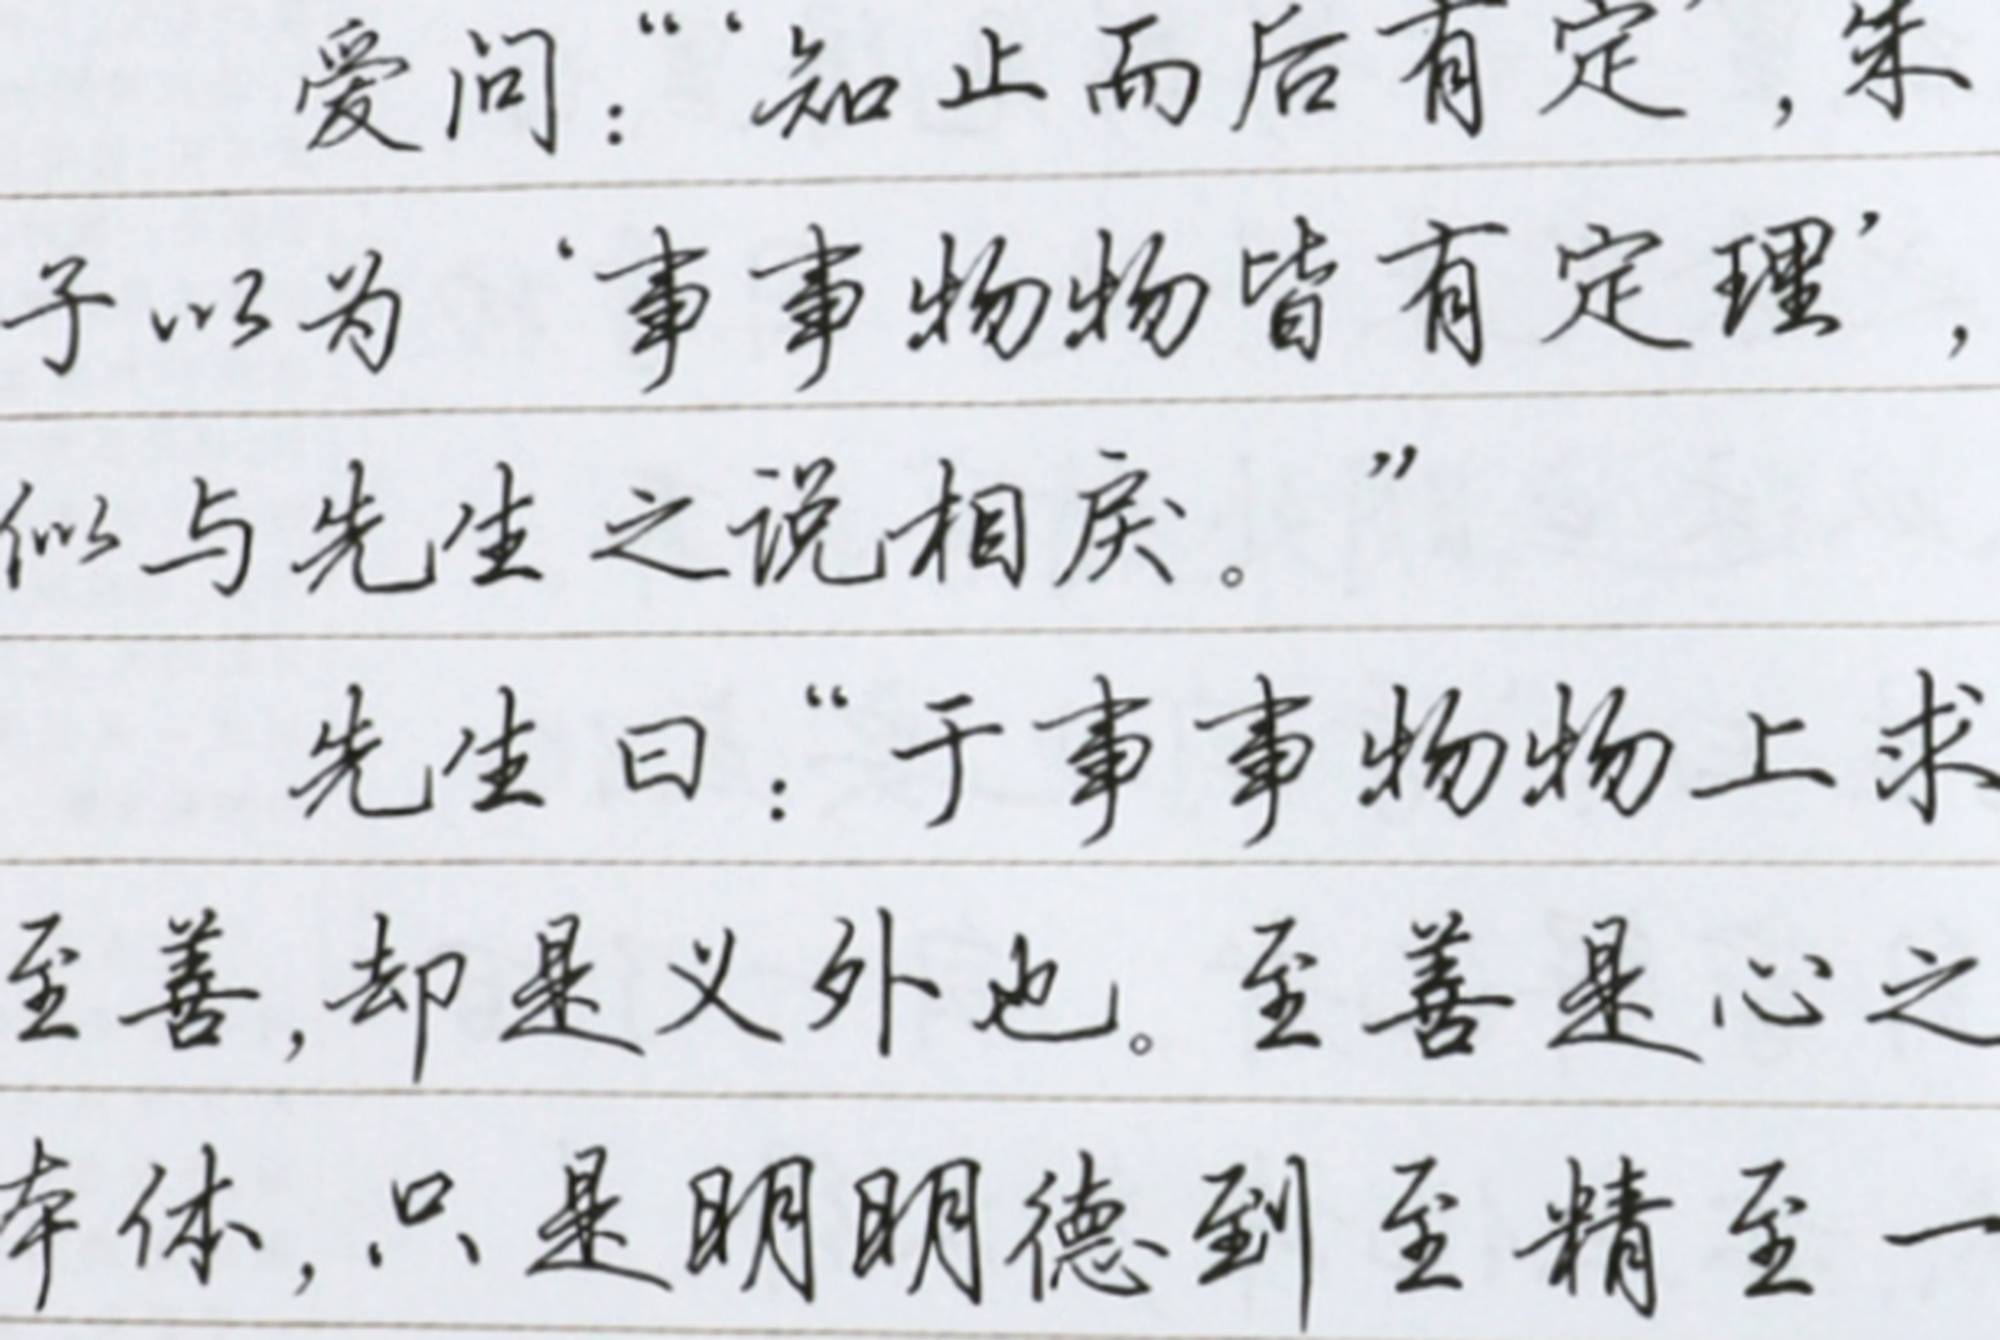 爱问：“‘知止而后有定’，朱
子以为‘事事物物皆有定理’，
似与先生之说相戾。”
先生曰：“于事事物物上求
至善，却是义外也。至善是心之
本体，只是明明德到至精至一